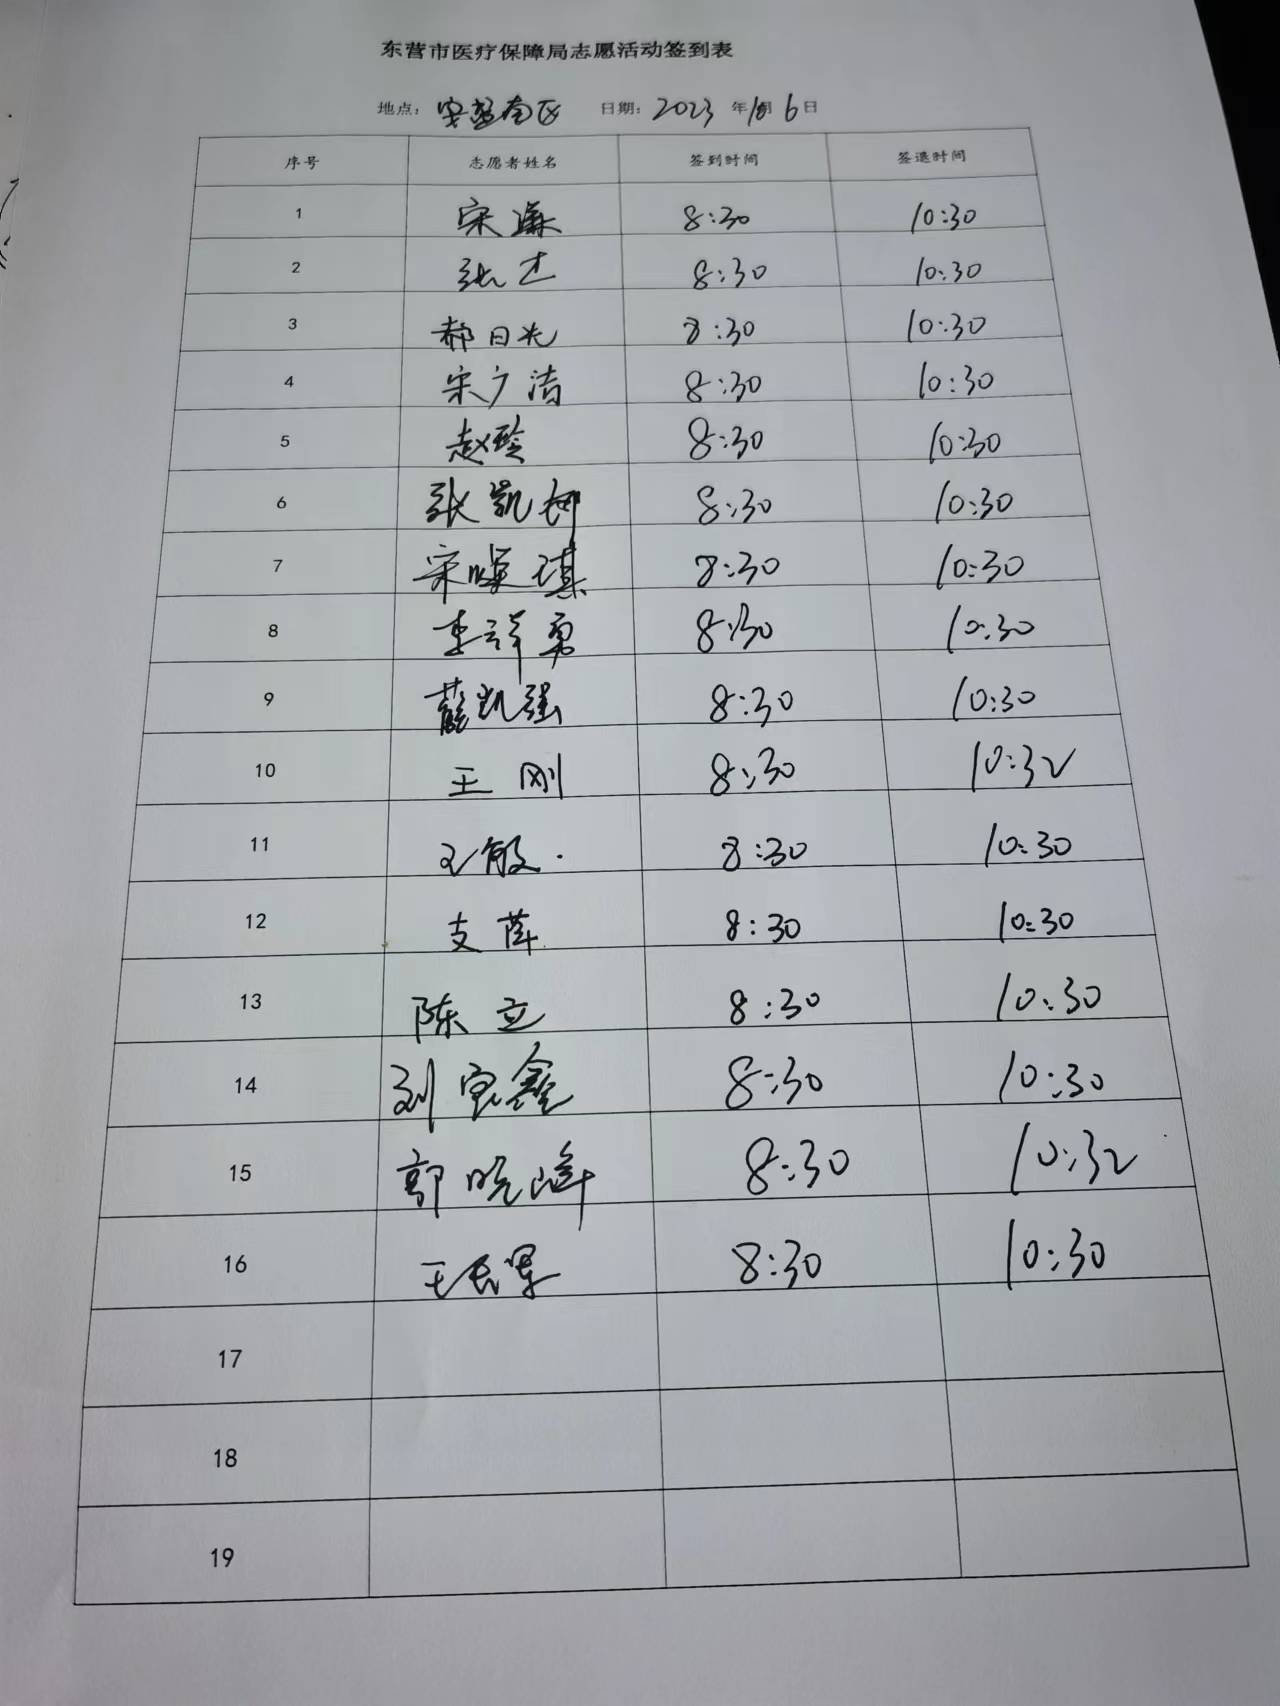 东营市医疗保障局志愿活动签到表
地点：安盛南区 日期：2023年10月6日
序号 志愿者姓名 签到时间 签退时间
1 宋廉 8:30 10:30
2 张才 8:30 10:30
3 郝日光 8:30 10:30
4 宋广洁 8:30 10:30
5 赵玲 8:30 10:30
6 张凯 8:30 10:30
7 宋 琪 8:30 10:30
8 李祥勇 8:30 10:30
9 薛凯强 8:30 10:30
10 王刚 8:30 10:32
11 王敏 8:30 10:30
12 支萍 8:30 10:30
13 陈立 8:30 10:30
14 刘宝鑫 8:30 10:30
15 郭晓峰 8:30 10:32
16 王 8:30 10:30
17
18
19